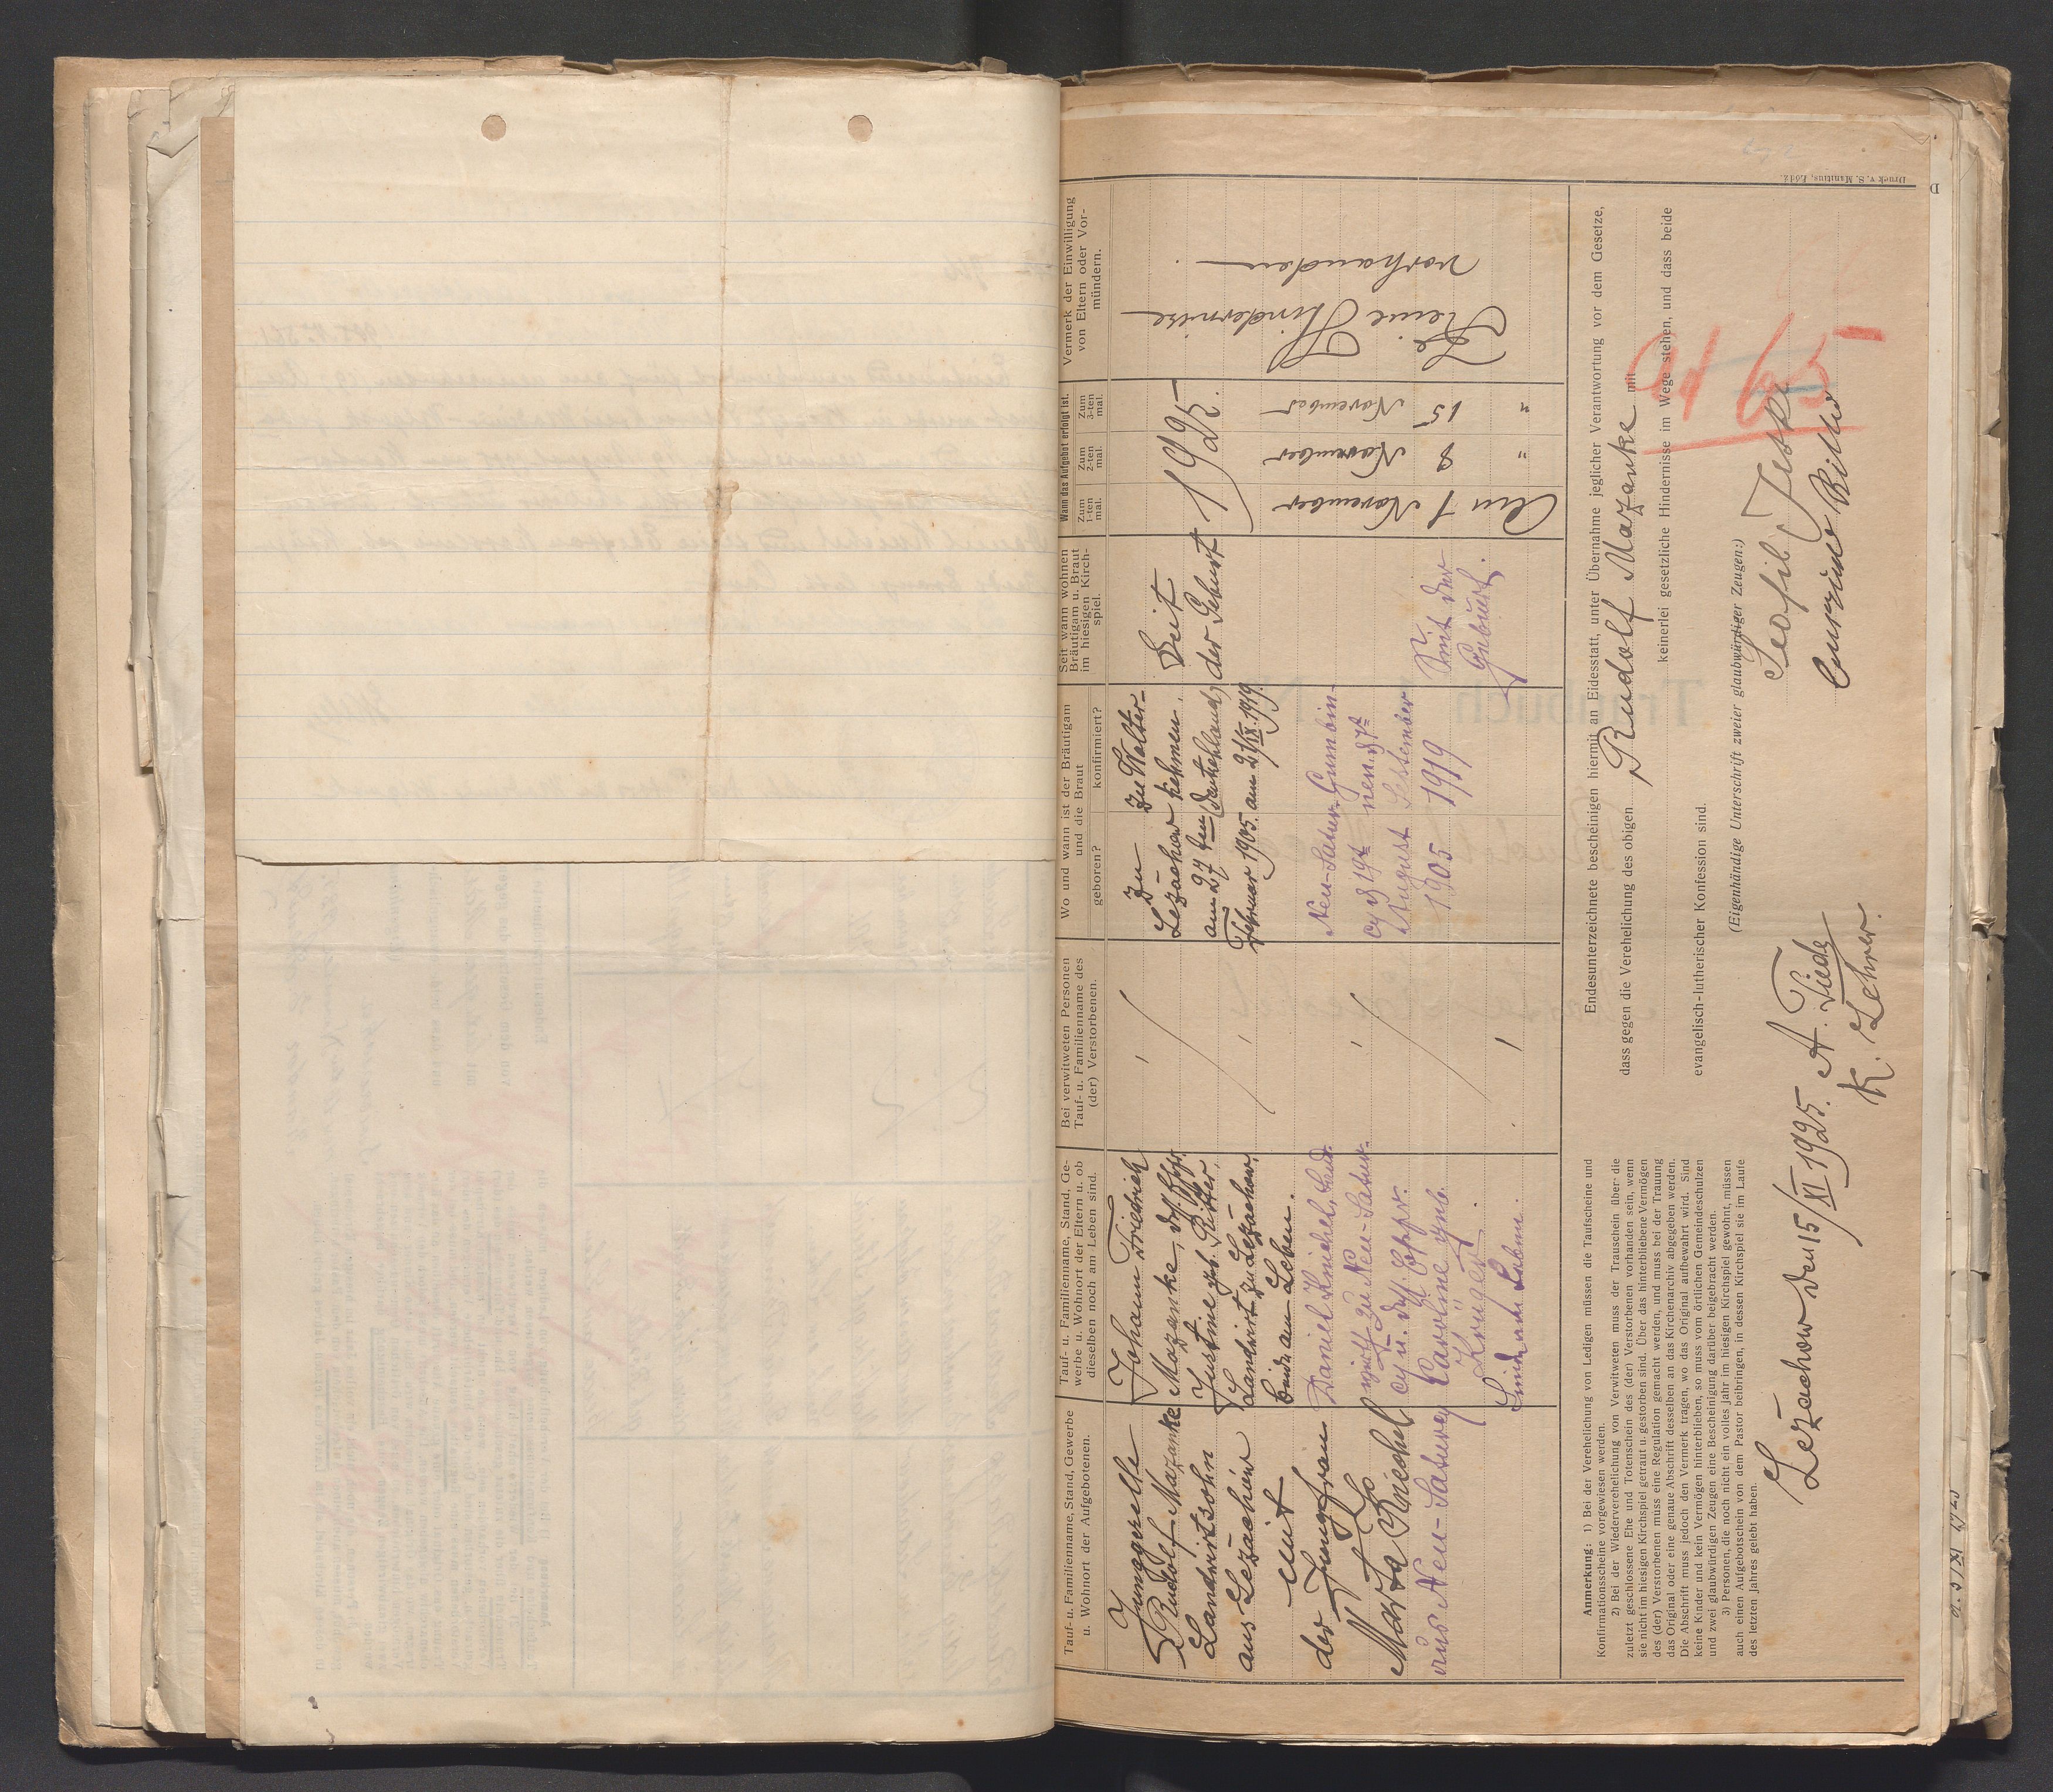 Druck v. S. Manitius, Łódź.
Tauf- u. Familienname, Stand, Gewerbe
u. Wohnort der Aufgebotenen.
Tauf- u. Familienname, Stand, Ge-
werbe u. Wohnort der Eltern u. ob
dieselben noch am Leben sind.
Bei verwitweten Personen
Tauf- u. Familienname des
(der) Verstorbenen.
Wo und wann ist der Bräutigam
und die Braut
geboren?
konfirmiert?
Seit wann wohnen
Bräutigam u. Braut
im hiesigen Kirch-
spiel.
Wann das Aufgebot erfolgt ist.
Zum
1-ten
mal.
Zum
2-ten
mal.
Zum
3-ten
mal.
Vermerk der Einwilligung
von Eltern oder Vor-
mündern.
Junggeselle
Rudolf Mazanke
Landwirtsohn
aus Lezachów
mit
der Jungfrau
Marta Knichel
aus Neu-Saturey
Johann Friedrich
Mazanke, dss. Ehfr.
Justine geb. Ritter,
Landwirt zu Lezachow.
beide am Leben.
Daniel Knichel, Land-
zu Neu-Satur-
ey u. dess. Ehefr.
Caroline geb.
Krüger
Sind am Leben.
zu
Lezachow
am 27ten
Februar 1905.
zu Walter-
kehmen,
(Deutschland)
am 21/IX. 1919.
Neu-Satur-
ey d 19t
August
1905
Gumbin-
nen. d 7t
September
1919
Seit
der Geburt
Seit der
Geburt.
1925.
Am 1 November
8 November
"
15 November
"
Keine Hindernisse
vorhanden.
Endesunterzeichnete bescheinigen hiermit an Eidesstatt, unter Übernahme jeglicher Verantwortung vor dem Gesetze,
dass gegen die Verehelichung des obigen Rudolf Mazanke mit
keinerlei gesetzliche Hindernisse im Wege stehen, und dass beide
evangelisch-lutherischer Konfession sind.
(Eigenhändige Unterschrift zweier glaubwürdiger Zeugen:)
65
Anmerkung: 1) Bei der Verehelichung von Ledigen müssen die Taufscheine und
Konfirmationsscheine vorgewiesen werden.
2) Bei der Wiederverehelichung von Verwitweten muss der Trauschein über die
zuletzt geschlossene Ehe und Totenschein des (der) Verstorbenen vorhanden sein, wenn
sie nicht im hiesigen Kirchspiel getraut u. gestorben sind. Über das hinterbliebene Vermögen
des (der) Verstorbenen muss eine Regulation gemacht werden, und muss bei der Trauung
das Original oder eine genaue Abschrift desselben an das Kirchenarchiv abgegeben werden.
Die Abschrift muss jedoch den Vermerk tragen, wo das Original aufbewahrt wird. Sind
keine Kinder und kein Vermögen hinterblieben, so muss vom örtlichen Gemeindeschulzen
und zwei glaubwürdigen Zeugen eine Bescheinigung darüber beigebracht werden.
3) Personen, die noch nicht ein volles Jahr im hiesigen Kirchspiel gewohnt, müssen
auch einen Aufgebotschein von dem Pastor beibringen, in dessen Kirchspiel sie im Laufe
des letzten Jahres gelebt haben.
Lezachow den 15/XI 1925. A. Tiede
K. Lehrer.